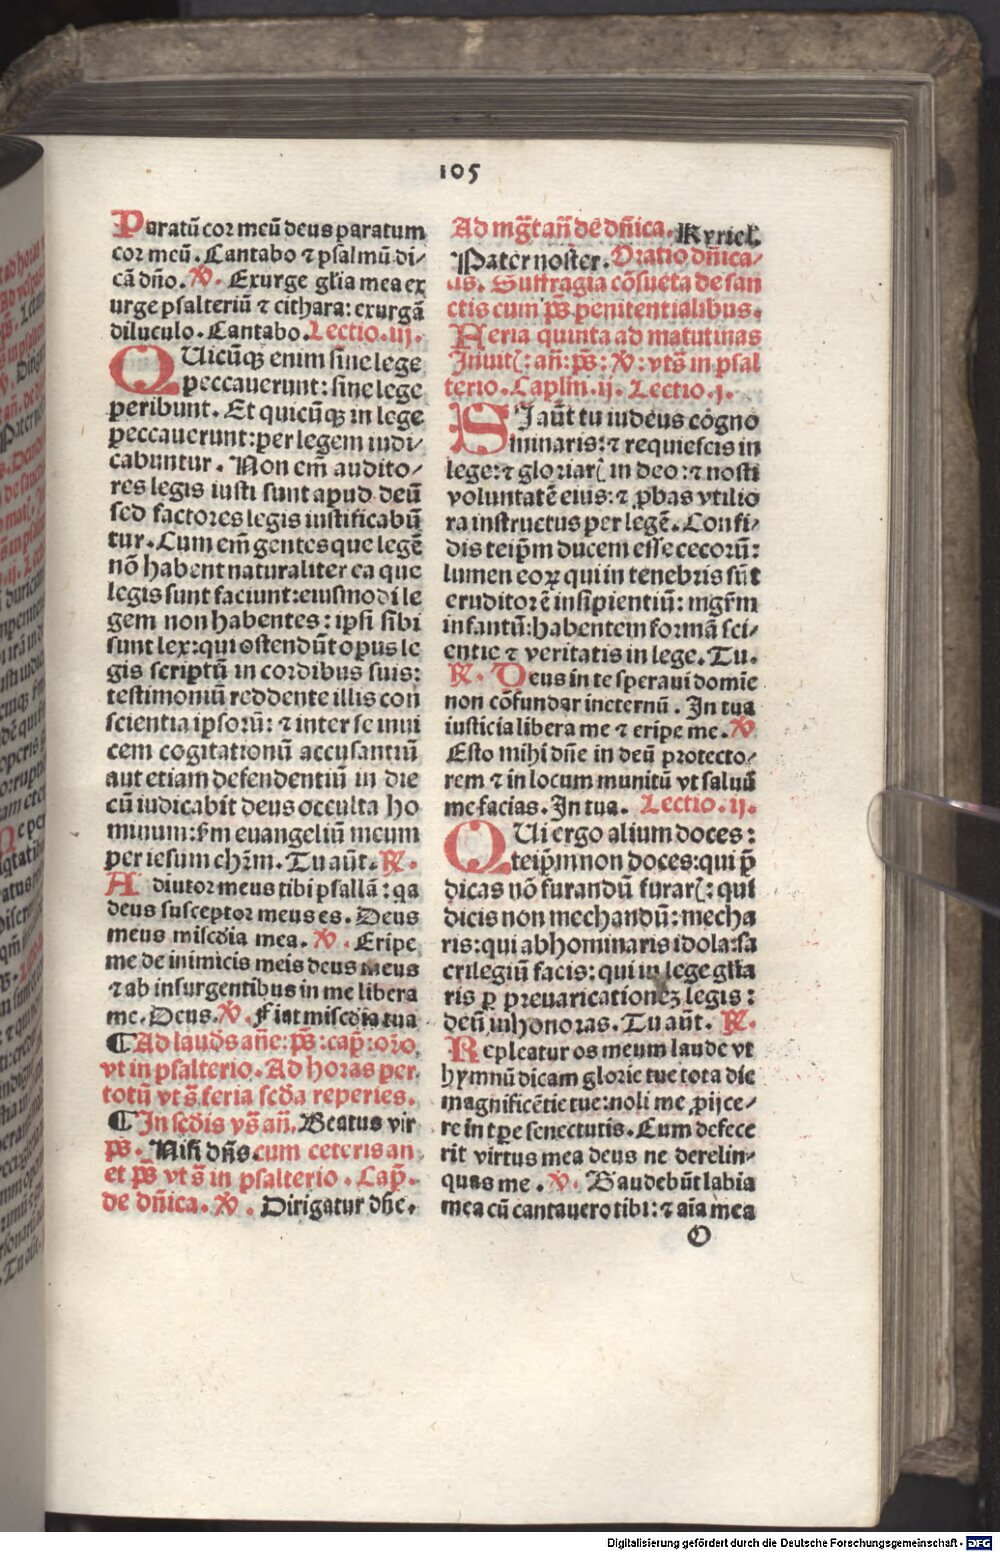 105
Paratū cor meū deus paratum
cor meū. Cantabo ⁊ psalmū di⸗
cā dn̄o. ℣. Exurge gl̄ia mea ex
urge psalteriū ⁊ cithara: exurgā
diluculo. Cantabo. Lectio. iij.
QUicūqꝫ enim sine lege
peccauerunt: sine lege
peribunt. Et quicūqꝫ in lege
peccauerunt: per legem iudi⸗
cabuntur. Non em̄ audito⸗
res legis iusti sunt apud deū
sed factores legis iustificabū
tur. Cum em̄ gentes que legē
nō habent naturaliter ea que
legis sunt faciunt: eiusmodi le
gem non habentes: ipsi sibi
sunt lex: qui ostendūt opus le
gis scriptū in cordibus suis:
testimoniū reddente illis con
scientia ipsorū: ⁊ inter se inui
cem cogitationū accusantiū
aut etiam defendentiū in die
cū iudicabit deus occulta ho
minum: s̄m euangeliū meum
per iesum chr̄m. Tu aūt. ℟.
Adiutor meus tibi psallā: qa
deus susceptor meus es. Deus
meus mis̄cdia mea. ℣. Eripe
me de inimicis meis deus meus
⁊ ab insurgentibus in me libera
me. Deus. ℣. Fiat mis̄cdia tua
¶ Ad laud̄s an̄e: ps̄: cap̄: or̄o,
vt in psalterio. Ad horas per
totū vt s̄. feria scd̄a reperies.
¶ In scd̄is vs̄ an̄. Beatus vir
ps̄. Nisi dn̄s. cum ceteris an
et ps̄ vt s̄ in psalterio. Cap̄.
de dn̄ica. ℣. Dirigatur dn̄e.
Ad mḡt an̄ de dn̄ica. Kyriel.
Pater noster. Oratio dn̄ica⸗
lis. Suffragia cōsueta de san
ctis cum ps̄ penitentialibus.
Feria quinta ad matutinas
Inuit̄: an̄: ps̄: ℣: vt s̄ in psal
terio. Caplm̄. ij. Lectio. j.
SI aūt tu iudeus cogno
minaris: ⁊ requiescis in
lege: ⁊ gloriar̄ in deo: ⁊ nosti
voluntatē eius: ⁊ ꝓbas vtilio
ra instructus per legē. Confi⸗
dis teip̄m ducem esse cecorū:
lumen eoꝝ qui in tenebris sūt
eruditorē insipientiū: mgr̄m
infantū: habentem formā sci⸗
entie ⁊ veritatis in lege. Tu.
℟. Deus in te speraui domīe
non cōfundar in eternū. In tua
iusticia libera me ⁊ eripe me. ℣
Esto mihi dn̄e in deū protecto⸗
rem ⁊ in locum munitū vt saluū
me facias. In tua. Lectio. ij.
QUi ergo alium doces:
teip̄m non doces: qui p̄
dicas nō furandū furar̄: qui
dicis non mechandū: mecha
ris: qui abhominaris idola: sa
crilegiū facis: qui in lege gl̄ia
ris ꝑ preuaricationeꝫ legis:
deū inhonoras. Tu aūt. ℟.
Repleatur os meum laude vt
hymnū dicam glorie tue tota die
magnificētie tue: noli me ꝓijce⸗
re in tp̄e senectutis. Cum defece
rit virtus mea deus ne derelin⸗
quas me. ℣. Gaudebūt labia
mea cū cantauero tibi: ⁊ aīa mea
O
Digitalisierung gefördert durch die Deutsche Forschungsgemeinschaft - DFG